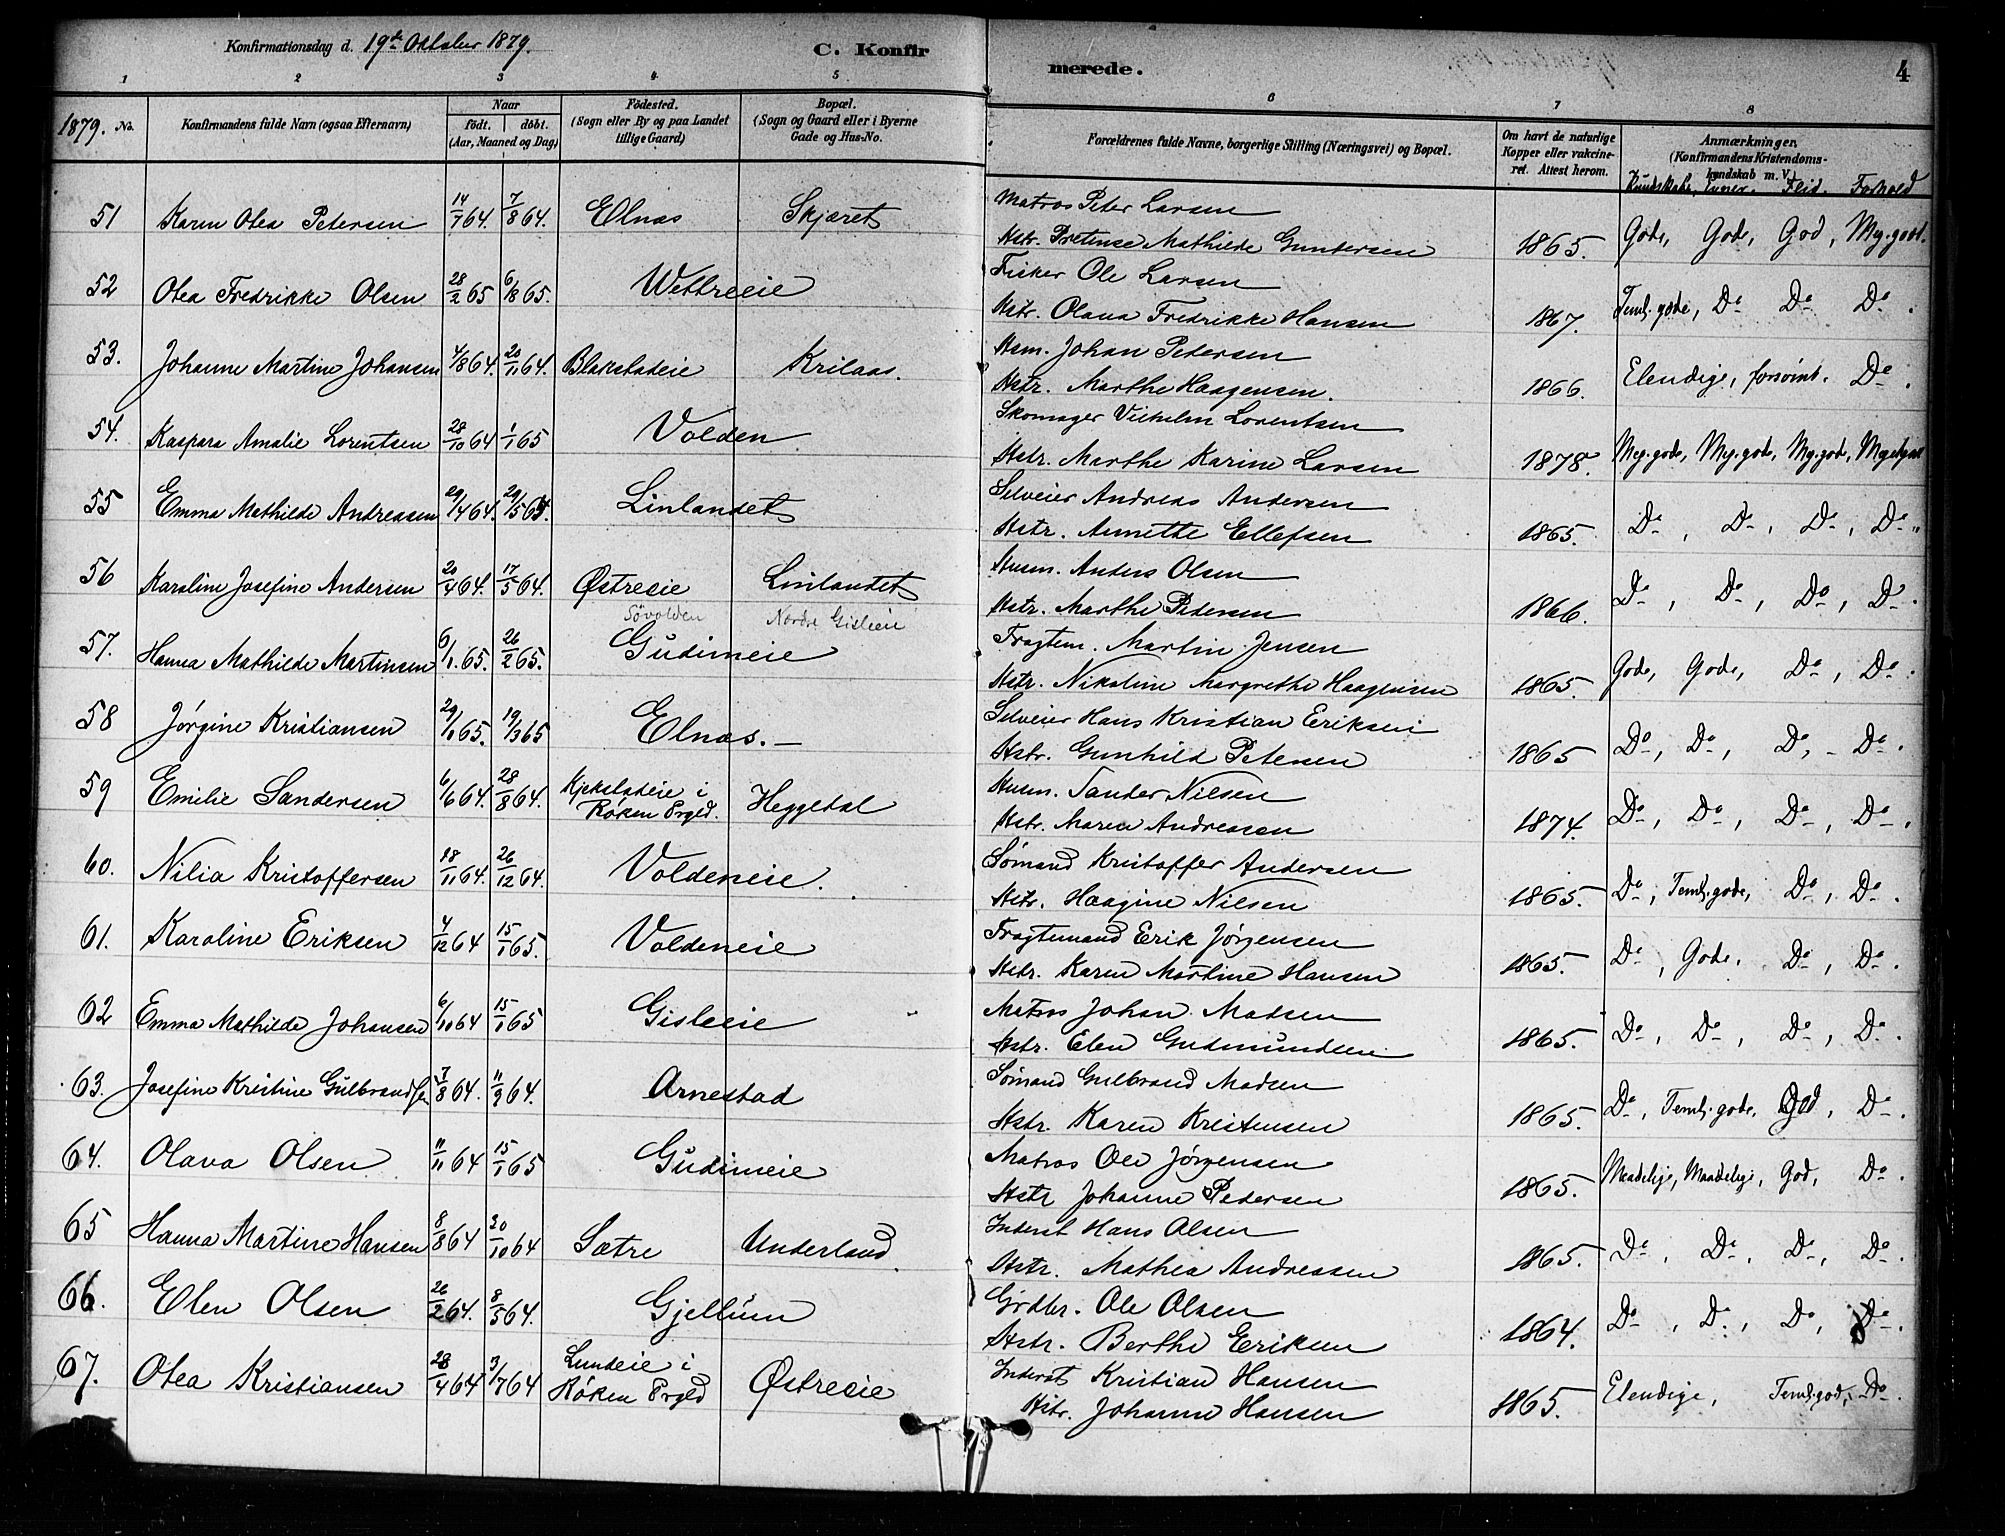 Konfirmationsdag d. 19de Oktober 1879.
C. Konfir
merede.
4
1 2 3 4 5 6 7 8
1879. No.
Konfirmandens fulde Navn (ogsaa Efternavn)
Naar
født. døbt.
(Aar, Maaned og Dag)
Fødested.
(Sogn eller By og paa Landet
tillige Gaard)
Bopæl.
(Sogn og Gaard eller i Byerne
Gade og Hus-No.
Forældrenes fulde Navne, borgerlige Stilling (Næringsvei) og Bopæl.
Om havt de naturlige
Kopper eller vakcine-
ret. Attest herom.
Anmærkninger.
(Konfirmandens Kristendoms-
kundskab m. V.)
Kundskabe, Evner. Flid. Forhold
51 Karen Olea Petersen 14/7 64. 7/8 64. Elnæs Skjæret
Matros Peter Larsen
Hstr. Pretense Mathilde Guntersen 1865. Gode, Gode, God, Mg. godt.
52 Olea Fredrikke Olsen 28/2 65 6/18 65. Wettreeie
Fisker Ole Larsen
Hstr. Olava Fredrikke Hansen 1867. Teml. gode, Do Do Do.
53. Johanne Martine Johansen 4/8 64. 20/11 64. Blakstadeie Krilaas.
Hsm. Johan Pedersen
Hstr. Marthe Haagensen. 1866. Elendige, forsømt. Do.
54. Kaspara Amalie Lorentsen 28/10 64 1/1 65 Volden
Skomager Vilhelm Lorentsen
Hstr. Marthe Karine Larsen 1878. Meg. gode, Mg. gode, Mg. god,
55 Emma Mathilde Andreasen 29/4 64. 29/5 64. Linlandet
Selveier Andreas Andersen
Hstr. Annette Ellefsen 1865. Do, Do, Do, Do
56 Karoline Josefine Andersen 20/4 64. 17/5 64. Østreeie Linlandet
Husm. Anders Olsen
Hstr. Marthe Pedersen 1866. Do, Do, Do, Do.
Søvolden Nordre Gisleeie
57. Hanna Mathilde Martinsen 6/1 65. 26/2 65. Gudimeie
Fragtem. Martin Jensen
Hstr. Nikoline Margrethe Haagensen 1865. Gode, Gode, Do, Do.
58 Jørgine Kristiansen 29/1 65. 19/3 65 Elnæs. —
Selveier Hans Kristian Eriksen
Hstr. Gunhild Petersen 1865 Do, Do, Do, - Do.
59 Emilie Sandersen 6/6 64. 28/8 64. Kjekstadeie i
Røken Prgld. Heggedal
Husm. Sander Nilsen
Hstr. Maren Andreasen 1874. Do, Do, Do, Do.
60. Nilia Kristoffersen 18/11 64. 26/12 64. Voldeneie.
Sømand Kristoffer Andersen
Hstr. Haagine Nilsen 1865. Do, Teml. gode, Do, Do.
61. Karoline Eriksen 4/12 64 15/1 65. Voldeneie
Fragtemand Erik Jørgensen
Hstr. Karen Martine Hansen 1865. Do, Gode. Do, Do.
62 Emma Mathilde Johansen 6/10 64 15/1 65 Gisleeie
Matros Johan Madsen
Hstr. Elen Gudmundsen 1865. Do, Do, Do, Do.
63. Josefine Kristine Gulbrandsen 7/8 64. 11/9 64. Arnestad
Sømand Gulbrand Madsen
Hstr. Karen Kristensen 1865. Do, Teml. gode, God, Do.
64. Olava Olsen 11/11 64 15/1 65 Gudimeie
Matros Ole Jørgensen
Hstr Johanne Pedersen 1865. Maadelige, Maadelige, God, Do.
65 Hanna Martine Hansen 8/8 64 30/10 64 Sætre Underland
Inderst Hans Olsen
Hstr. Mathea Andreasen 1865. Do, Do, Do, Do.
66. Elen Olsen 26/2 64. 8/5 64. Gjellum
Grdbr. Ole Olsen
Hstr. Berthe Eriksen 1864. Do, Do, Do, Do.
67. Olea Kristiansen 28/4 64 3/7 64 Lundeie i
Røken Prgld Østreeie
Inderst Kristian Hansen
Hstr. Johanne Hansen 1865. Elendige, Teml. god, Do.